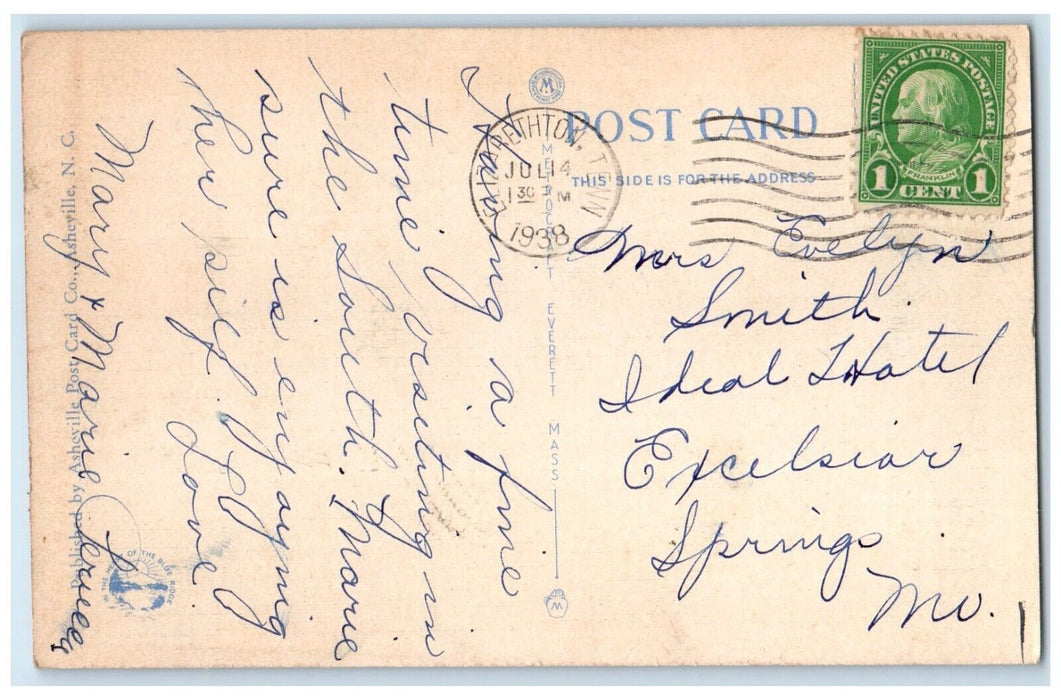 Having a fine
time visiting in
the South. Marie
sure is enjoying
her self.
Love
Mary & Marie
POST CARD
THIS SIDE IS FOR THE ADDRESS
ELIZABETHTON, TENN
JUL 14
1 30 PM
1938
UNITED STATES POSTAGE
FRANKLIN
1 CENT 1
Mrs Evelyn
Smith
Ideal Hotel
Excelsior
Springs
Mo.
METROCRAFT EVERETT MASS
Published by Asheville Post Card Co., Asheville, N. C.
THE OF THE BLUE RIDGE